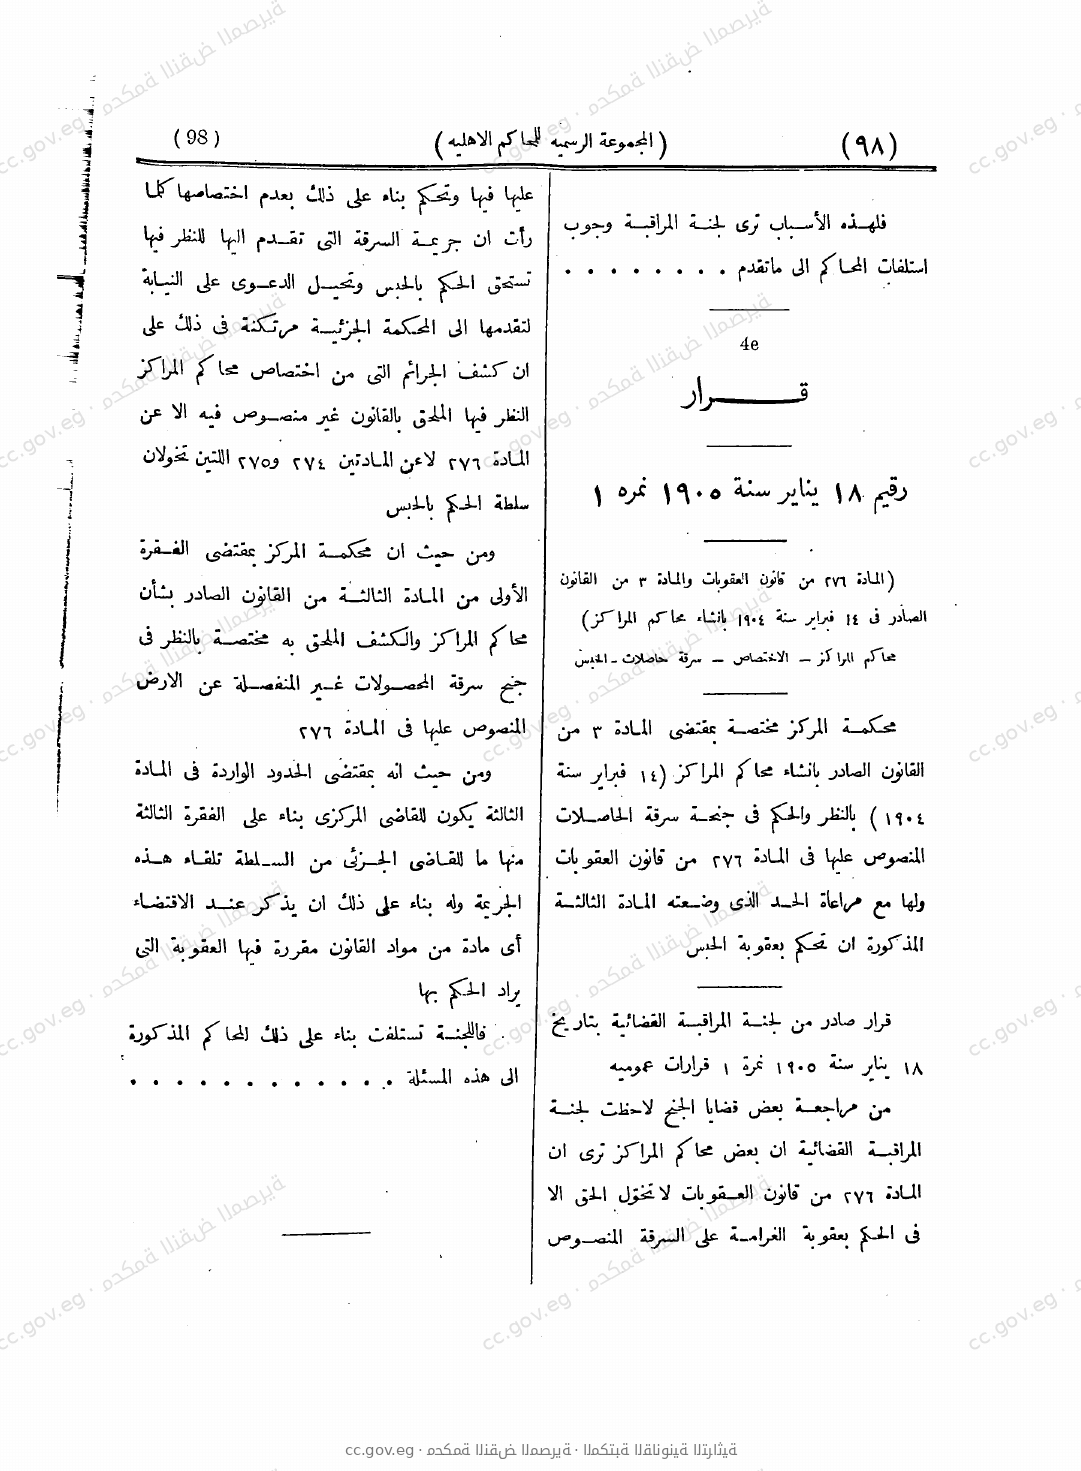 (٩٨)
(المجموعة الرسميه للمحاكم الاهليه)
(98)
فلهذه الأسباب ترى لجنة المراقبة وجوب
استلفات المحاكم الى ماتقدم . . . . . . . .
4e
قرار
رقيم ١٨ يناير سنة ١٩٠٥ نمره ١
(المادة ٢٧٦ من قانون العقوبات والمادة ٣ من القانون
الصادر فى ١٤ فبراير سنة ١٩٠٤ بانشاء محاكم المراكز)
محاكم المراكز – الاختصاص – سرقة حاصلات – الحبس
محكمة المركز مختصة بمقتضى المادة ٣ من
القانون الصادر بانشاء محاكم المراكز (١٤ فبراير سنة
١٩٠٤) بالنظر والحكم فى جنحة سرقة الحاصلات
المنصوص عليها فى المادة ٢٧٦ من قانون العقوبات
ولها مع مراعاة الحد الذى وضعته المادة الثالثة
المذكورة ان تحكم بعقوبة الحبس
قرار صادر من لجنة المراقبة القضائية بتاريخ
١٨ يناير سنة ١٩٠٥ نمرة ١ قرارات عموميه
من مراجعة بعض قضايا الجنح لاحظت لجنة
المراقبة القضائية ان بعض محاكم المراكز ترى ان
المادة ٢٧٦ من قانون العقوبات لا تخول الحق الا
فى الحكم بعقوبة الغرامة على السرقة المنصوص
عليها فيها وتحكم بناء على ذلك بعدم اختصاصها كلما
رأت ان جريمة السرقة التى تقدم اليها للنظر فيها
تستحق الحكم بالحبس وتحيل الدعوى على النيابة
لتقدمها الى المحكمة الجزئية مرتكنة فى ذلك على
ان كشف الجرائم التى من اختصاص محاكم المراكز
النظر فيها الملحق بالقانون غير منصوص فيه الا عن
المادة ٢٧٦ لا عن المادتين ٢٧٤ و٢٧٥ اللتين تخولان
سلطة الحكم بالحبس
ومن حيث ان محكمة المركز بمقتضى الفقرة
الأولى من المادة الثالثة من القانون الصادر بشأن
محاكم المراكز والكشف الملحق به مختصة بالنظر فى
جنح سرقة المحصولات غير المنفصلة عن الارض
المنصوص عليها فى المادة ٢٧٦
ومن حيث انه بمقتضى الحدود الواردة فى المادة
الثالثة يكون للقاضى المركزى بناء على الفقرة الثالثة
منها ما للقاضى الجزئى من السلطة تلقاء هذه
الجريمة وله بناء على ذلك ان يذكر عند الاقتضاء
أى مادة من مواد القانون مقررة فيها العقوبة التى
يراد الحكم بها
فاللجنة تستلفت بناء على ذلك المحاكم المذكورة
الى هذه المسئلة . . . . . . . . . . . .
cc.gov.eg · محكمة النقض المصرية · المكتبة القانونية التراثية